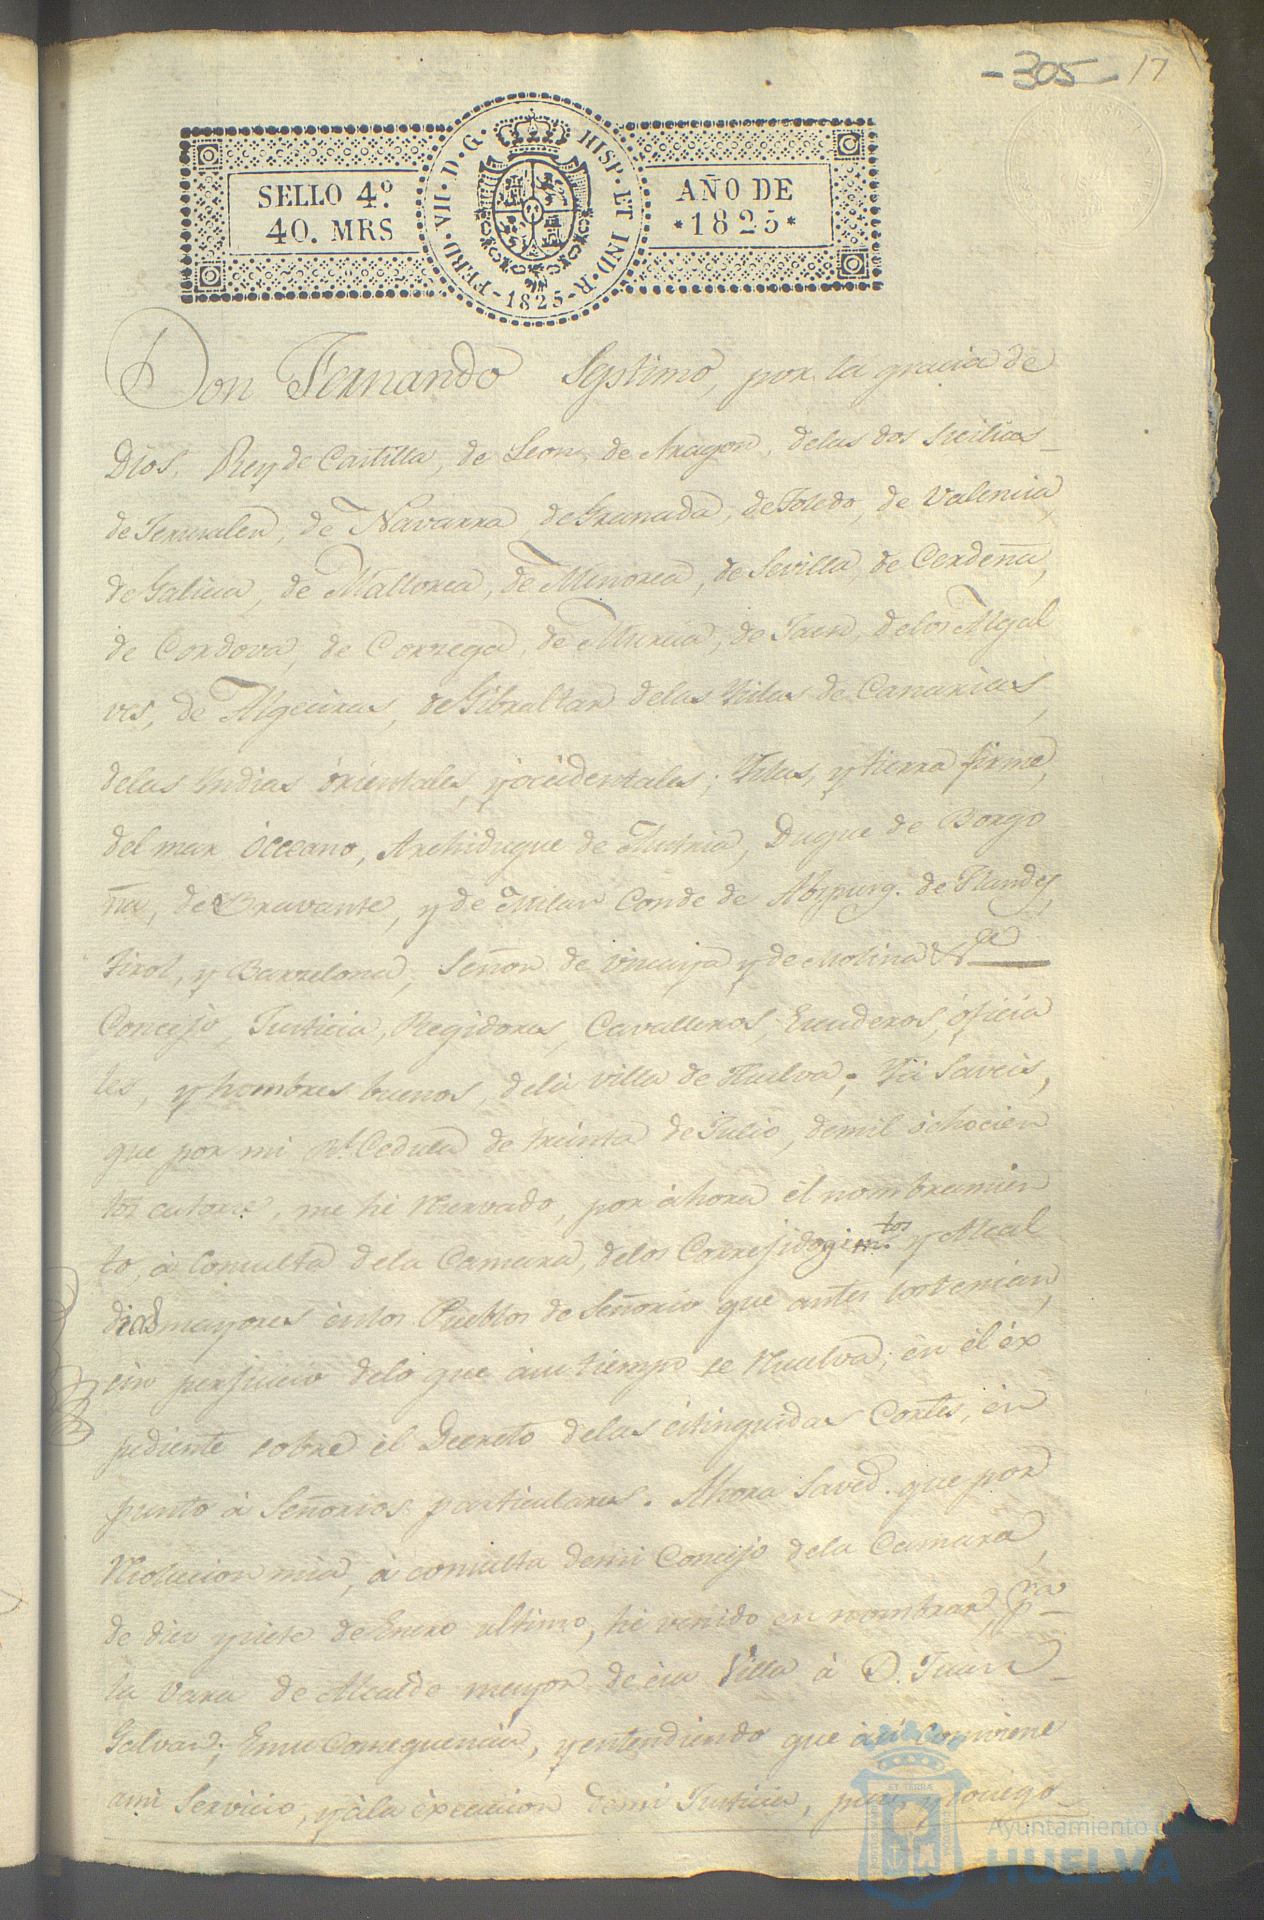 -305- 17
SELLO 4º.
40. MRS
FERD. VII. D. G. HISP. ET IND. R.
-1825-
AÑO DE
*1825*
Don Fernando Septimo, por la gracia de
Dios, Rey de Castilla, de Leon, de Aragon, delas dos Sicilias
de Jerusalen, de Navarra, de Granada, de Toledo, de Valencia,
de Galicia, de Mallorca, de Menorca, de Sevilla, de Cerdeña,
de Cordova, de Corzega, de Murcia, de Jaen, delos Algar
ves, de Algeciras, de Gibraltar delas Yslas de Canarias,
delas Yndias òrientales, y òccidentales; Yslas, y tierra firme,
del mar òcceano, Archiduque de Austria, Duque de Borgo
ña, de Bravante, y de Milan Conde de Abspurg. de Flandes,
Tirol, y Barzelona, Señor de Vizcaya y de Molina &ª
Concejo, Justicia, Regidores, Cavalleros, Escuderos, òficia
les, y hombres buenos, dela villa de Huelva; Yà Saveis,
que por mi Rl. Cedula de treinta de Julio, demil òchocien
tos catorce, me hé reservado, por àhora él nombramien
to, à Consulta dela Camara, delos Corregidogimtos. y Alcal
dias mayores énlos Pueblos de Señorio que antes los tenian,
sin perjuicio delo que àsu tiempo se resuelva, én él éx
pediente sobre él Decreto delas éstinguidas Cortes, én
punto à Señorios particulares. Ahora Saved. que por
resolucion mia, à consulta demi Concejo dela Camara,
de diez y siete de Enero ultimo, hé venido en nombrar pª
la Vara de Alcalde mayor de ésa Villa à D. Juan
Galvan; Ensu Consequencia, y entendiendo que àsi conviene
ami Servicio, y àla éxecucion demi Justicia,
ET TERRÆ
Ayuntamiento de
HUELVA